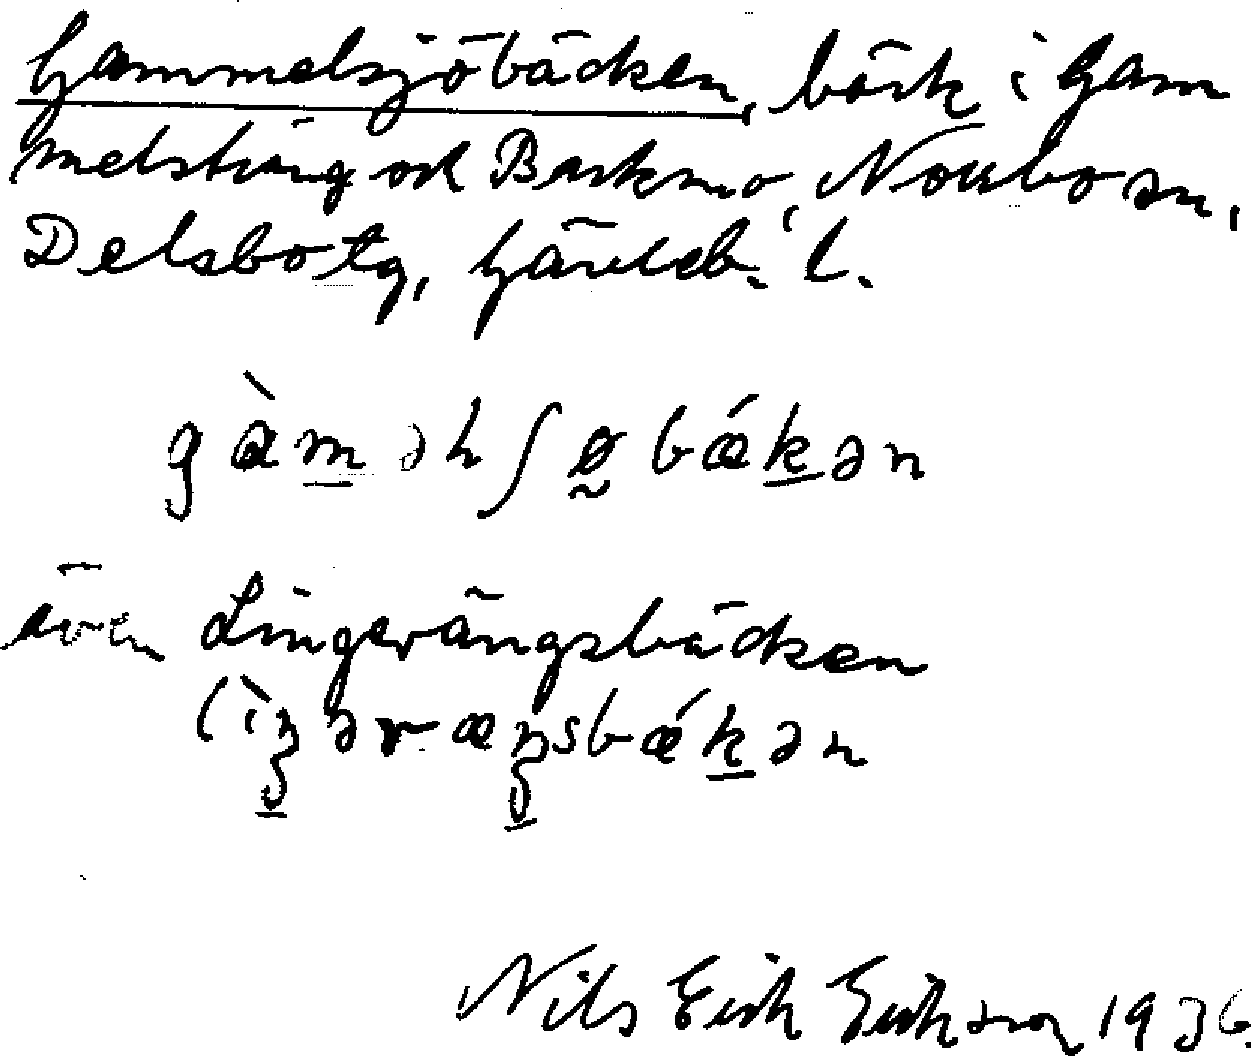 Gammelsjöbäcken, bäck i Gam
melsträng och Backmo, Norrbo sn,
Delsbo tg, Gävleb. l.
gàməlʃø̰bǽkən
även Lingervängsbäcken
lìŋərvæŋsbǽkən
Nils Erik Eriksson 1936.